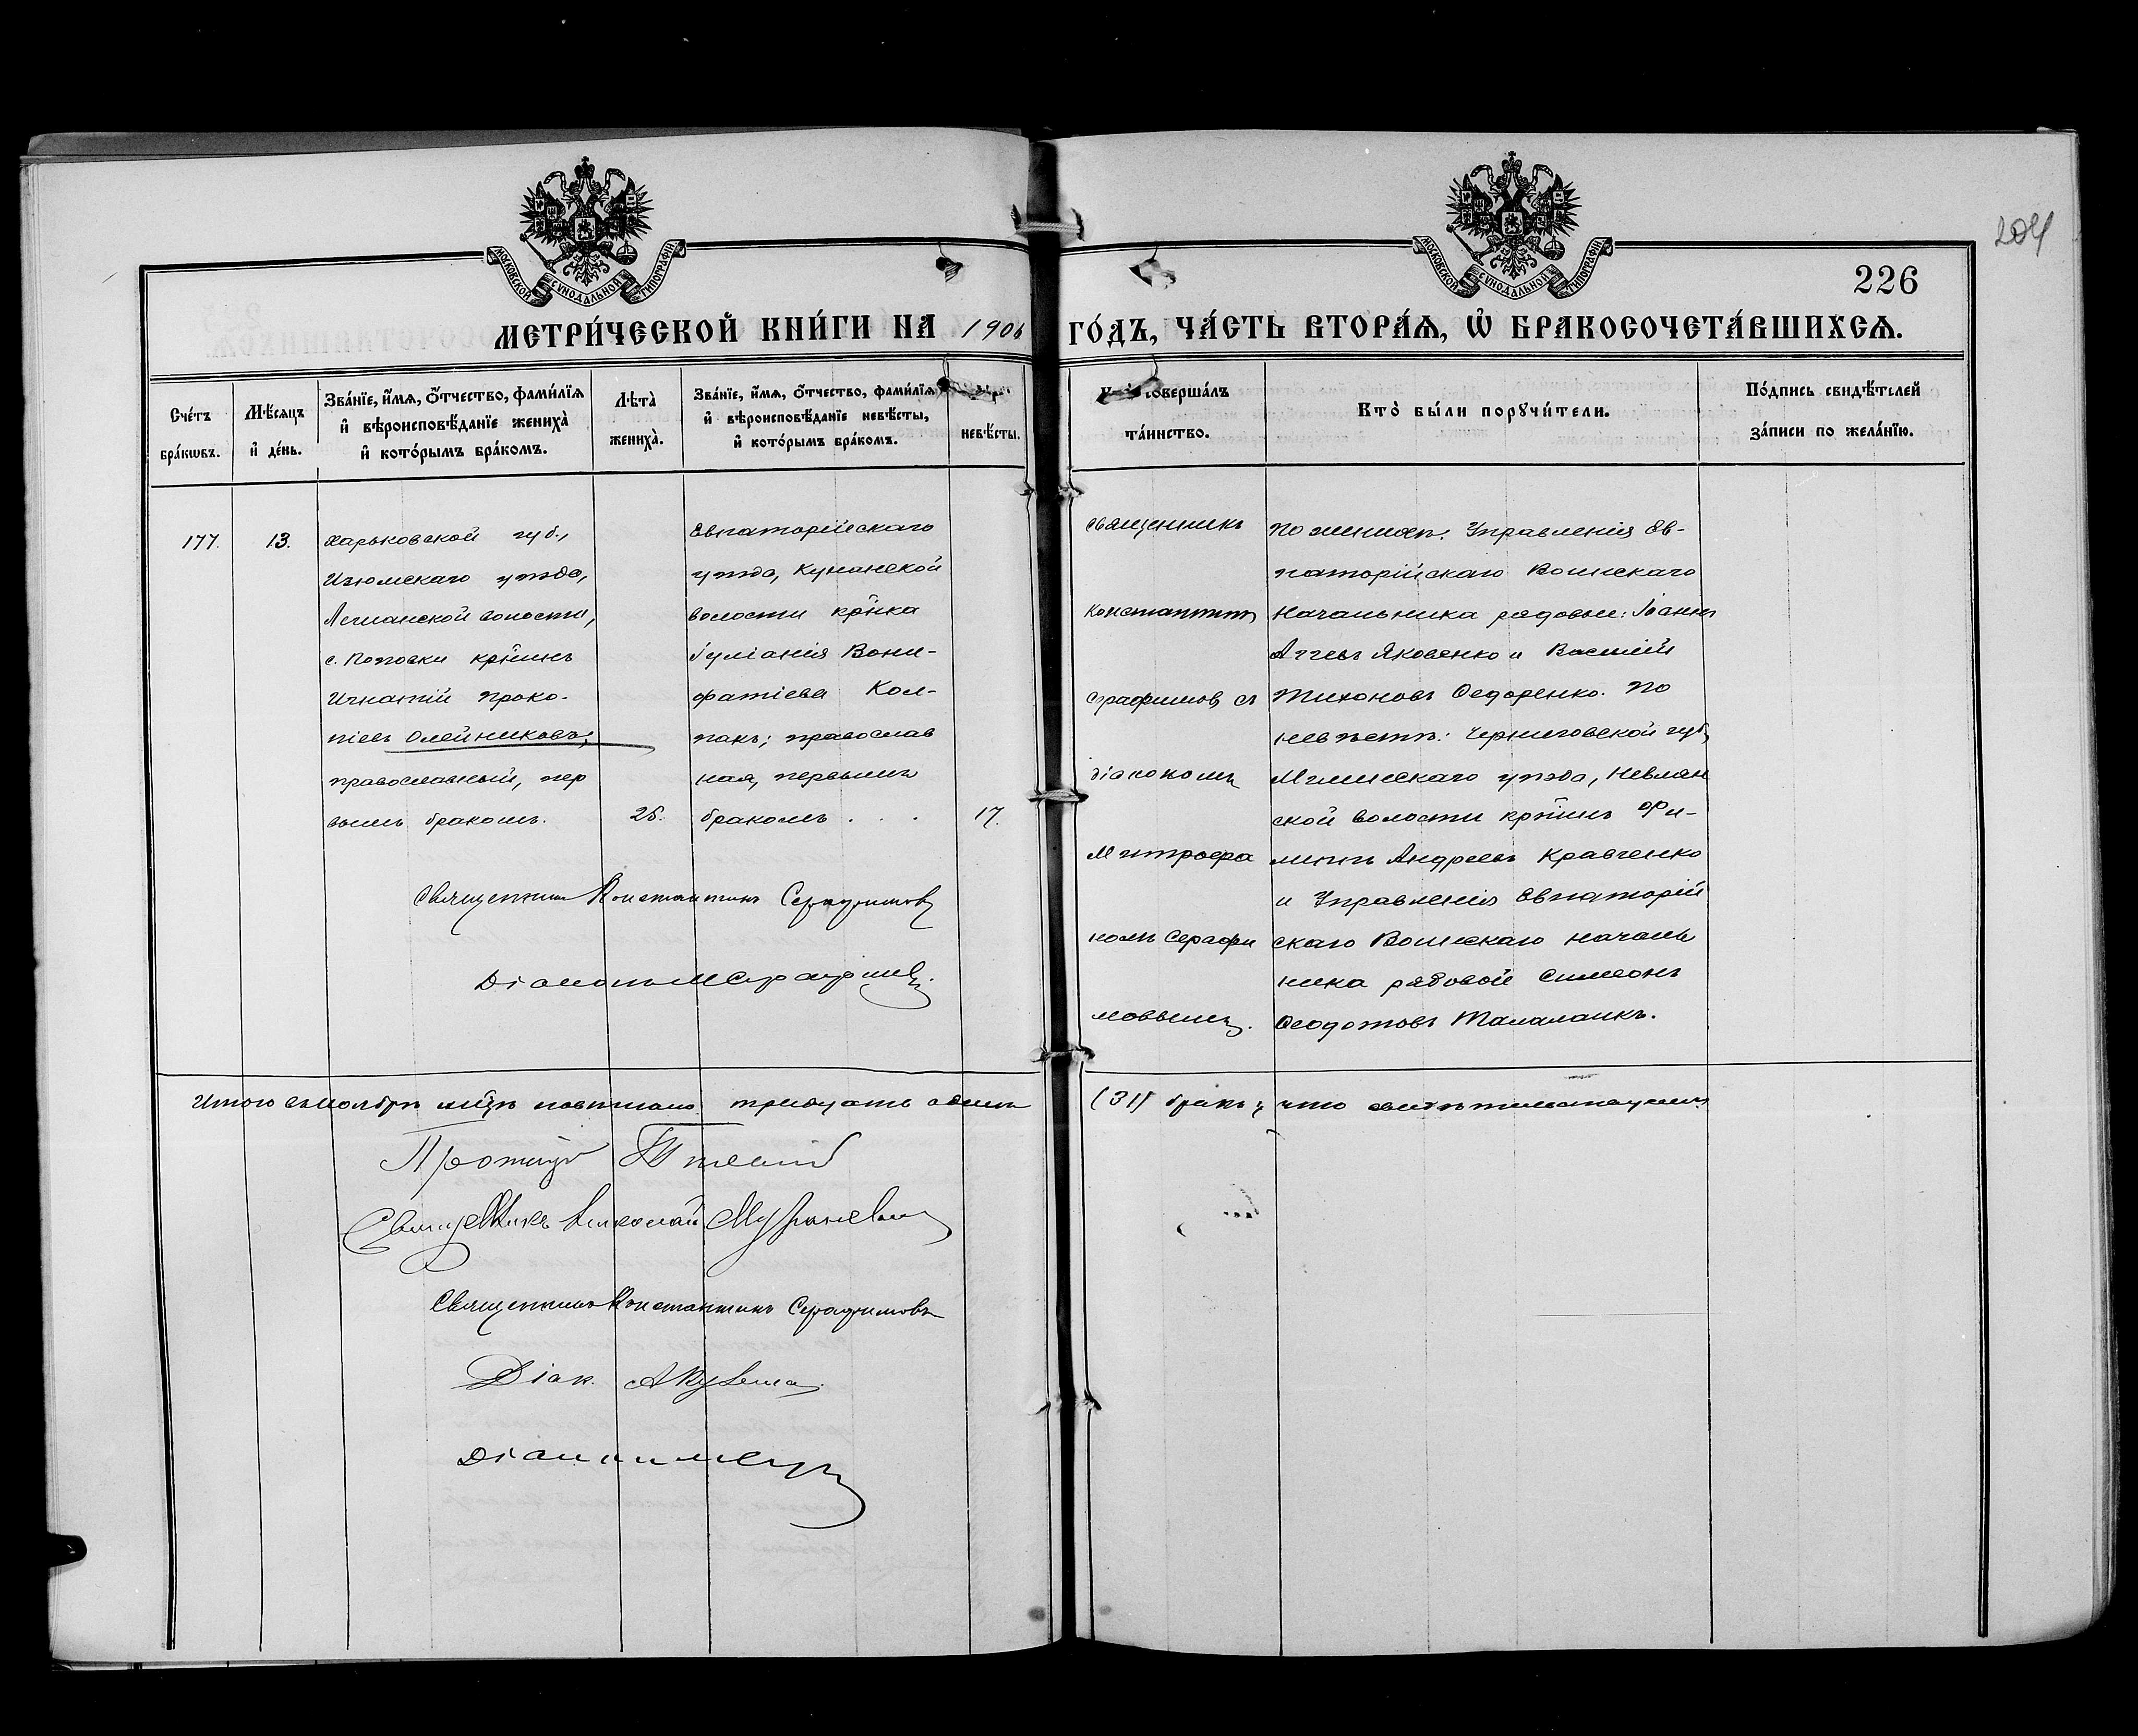 204
МОСКОВСКОЙ СѴНОДАЛЬНОЙ ТИПОГРАФІИ
МОСКОВСКОЙ СѴНОДАЛЬНОЙ ТИПОГРАФІИ
226
МЕТРИ́ЧЕСКОЙ КНИ́ГИ НА 1906 ГО́ДЪ, ЧА́СТЬ ВТОРА́Ѧ, Ѡ҆ БРАКОСОЧЕТА́ВШИХСѦ.
Сче́тъ
бра́кѡвъ.
Мѣ́сяцъ
и҆ де́нь.
Зва́нїе, и҆́мѧ, ѻ҆́тчество, фами́лїѧ
и҆ вѣроисповѣ́данїе жениха̀
и҆ кото́рымъ бра́комъ.
Лѣта̀
жениха̀.
Зва́нїе, и҆́мѧ, ѻ҆́тчество, фами́лїѧ
и҆ вѣроисповѣ́данїе невѣ́сты,
и҆ кото́рымъ бра́комъ.
невѣ́сты.
соверша́лъ
та́инство.
Кто̀ бы́ли порꙋчи́тели.
По́дпись свидѣ́телей
за́писи по жела́нїю.
177.
13.
Харьковской губ.,
Изюмскаго уѣзда,
Лиманской волости,
с. Поповки кр̃нинъ
Игнатій Проко-
піевъ Олейниковъ;
православный, пер
вымъ бракомъ.
26.
Евпаторійскаго
уѣзда, Кунанской
волости кр̃нка
Іуліанія Вони-
фатіева Кол-
пакъ; православ
ная, первымъ
бракомъ . . .
17.
Священникъ
Константинъ
Серафимовъ съ
діакономъ
Митрофа
номъ Серафи
мовымъ.
По жениху: Управленія Ев-
паторійскаго Воинскаго
Начальника рядовые: Іоаннъ
Аггеевъ Яковенко и Василій
Тихоновъ Ѳедоренко. По
невѣстѣ: Черниговской губ,
Мглинскаго уѣзда,
ской волости кр̃нинъ Фи-
липпъ Андреевъ Кравченко
и Управленія Евпаторій
скаго Воинскаго Началь
ника рядовой Симеонъ
Ѳеодотовъ Талалаикъ.
Священникъ Константинъ Серафимовъ
Діаконъ М Серафимовъ.
Итого въ Ноябрѣ мц̃ѣ повѣнчано тридцать одинъ (31) бракъ, что свидѣтельствуемъ:
Священникъ Николай
Священникъ Константинъ Серафимовъ
Діак.
Діаконъ